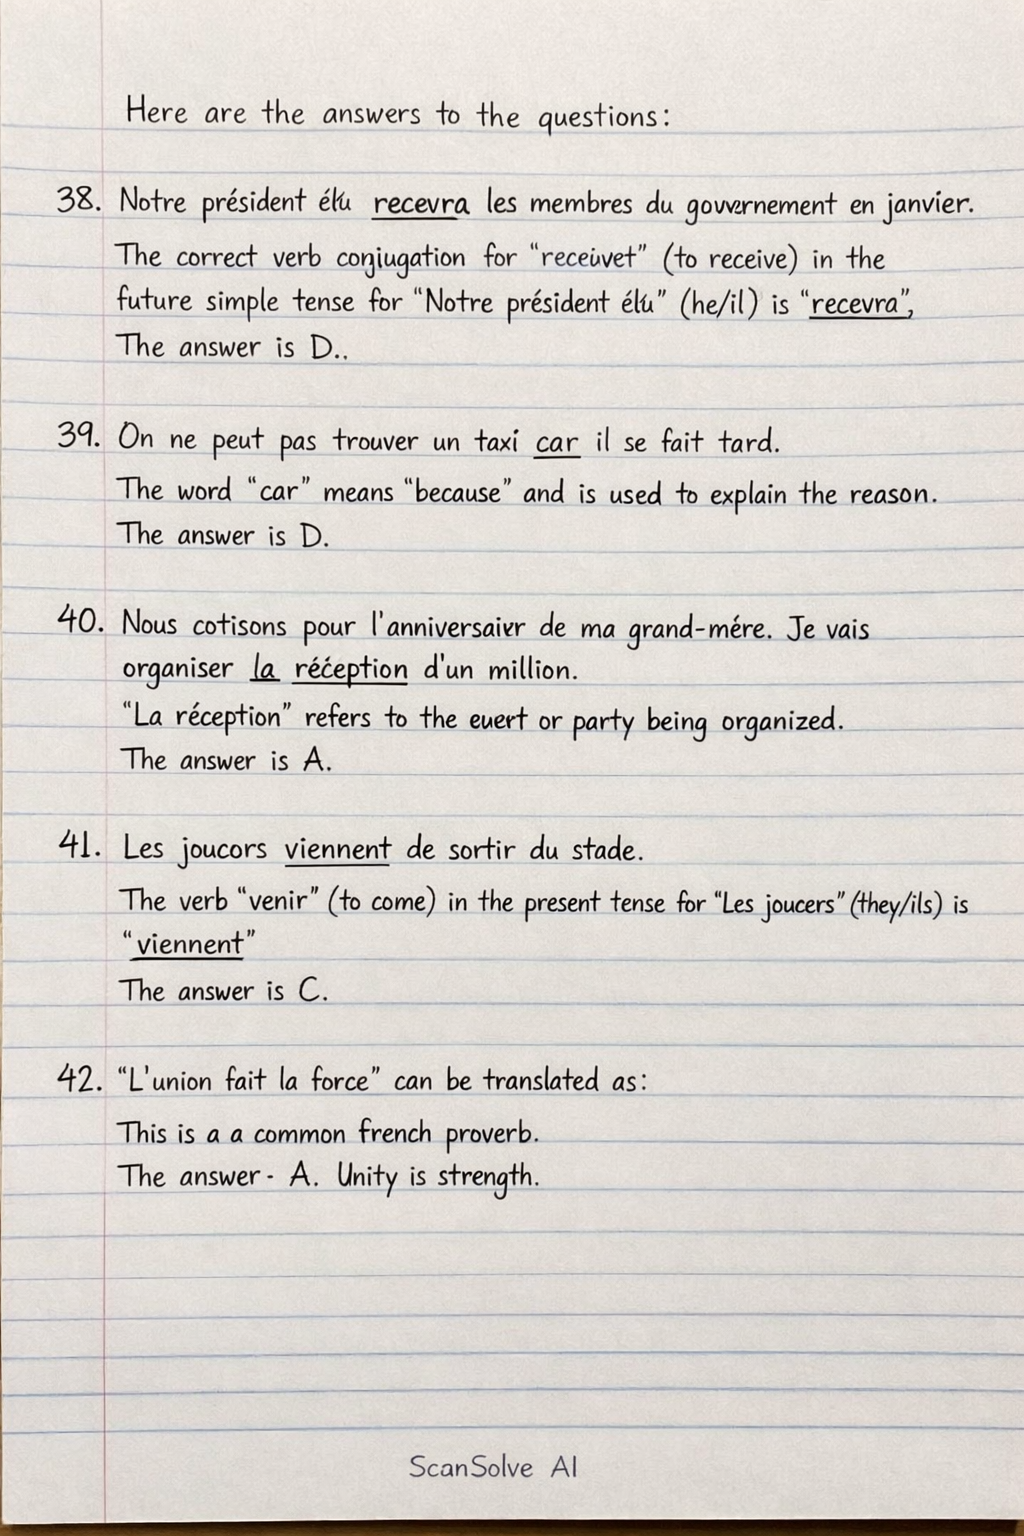 Here are the answers to the questions:
38. Notre président élu recevra les membres du gouvernement en janvier.
The correct verb conjiugation for "receuvet" (to receive) in the
future simple tense for "Notre président élu" (he/il) is "recevra",
The answer is D..
39. On ne peut pas trouver un taxi car il se fait tard.
The word "car" means "because" and is used to explain the reason.
The answer is D.
40. Nous cotisons pour l'anniversaier de ma grand-mére. Je vais
organiser la réception d'un million.
"La réception" refers to the euert or party being organized.
The answer is A.
41. Les joucors viennent de sortir du stade.
The verb "venir" (to come) in the present tense for "Les joucers" (they/ils) is
"viennent"
The answer is C.
42. "L'union fait la force" can be translated as:
This is a a common french proverb.
The answer - A. Unity is strength.
ScanSolve AI